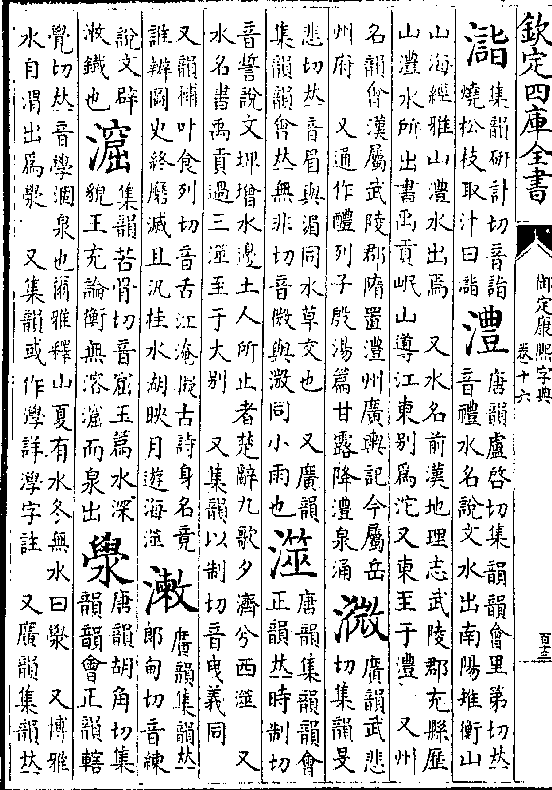 欽定四庫全書
御定康熙字典
卷十六
集韻研計切音詣
燒松枝取汁曰
澧
唐韻盧啓切集韻韻會里第切𠀤
音禮水名說文水出南陽雉衡山
山海經雅山澧水出焉 又水名前漢地理志武陵郡充縣歷
山澧水所出書禹貢岷山導江東別爲沱又東至于澧 又州
名韻會漢屬武陵郡隋置澧州廣輿記今屬岳
州府 又通作醴列子殷湯篇甘露降澧泉涌
㵟
廣韻武悲
切集韻旻
悲切𠀤音眉與湄同水草交也 又廣韻
集韻韻會𠀤無非切音微與溦同小雨也
澨
唐韻集韻韻會
正韻𠀤時制切
音誓說文埤增水邊土人所止者楚辭九歌夕濟兮西澨 又
水名書禹貢過三澨至于大別 又集韻以制切音曳義同
又韻補叶食列切音舌江淹擬古詩身名竟
誰辨圖史終磨滅且汎桂水湖映月遊海澨
㶑
廣韻集韻𠀤
郎甸切音練
說文辟
㶑鐵也
㵠
集韻苦骨切音窟玉篇水深
貌王充論衡無溶㵠而泉出
澩
唐韻胡角切集
韻韻會正韻轄
覺切𠀤音學涸泉也爾雅釋山夏有水冬無水曰澩 又博雅
水自渭出爲澩 又集韻或作㶅詳㶅字註 又廣韻集韻𠀤